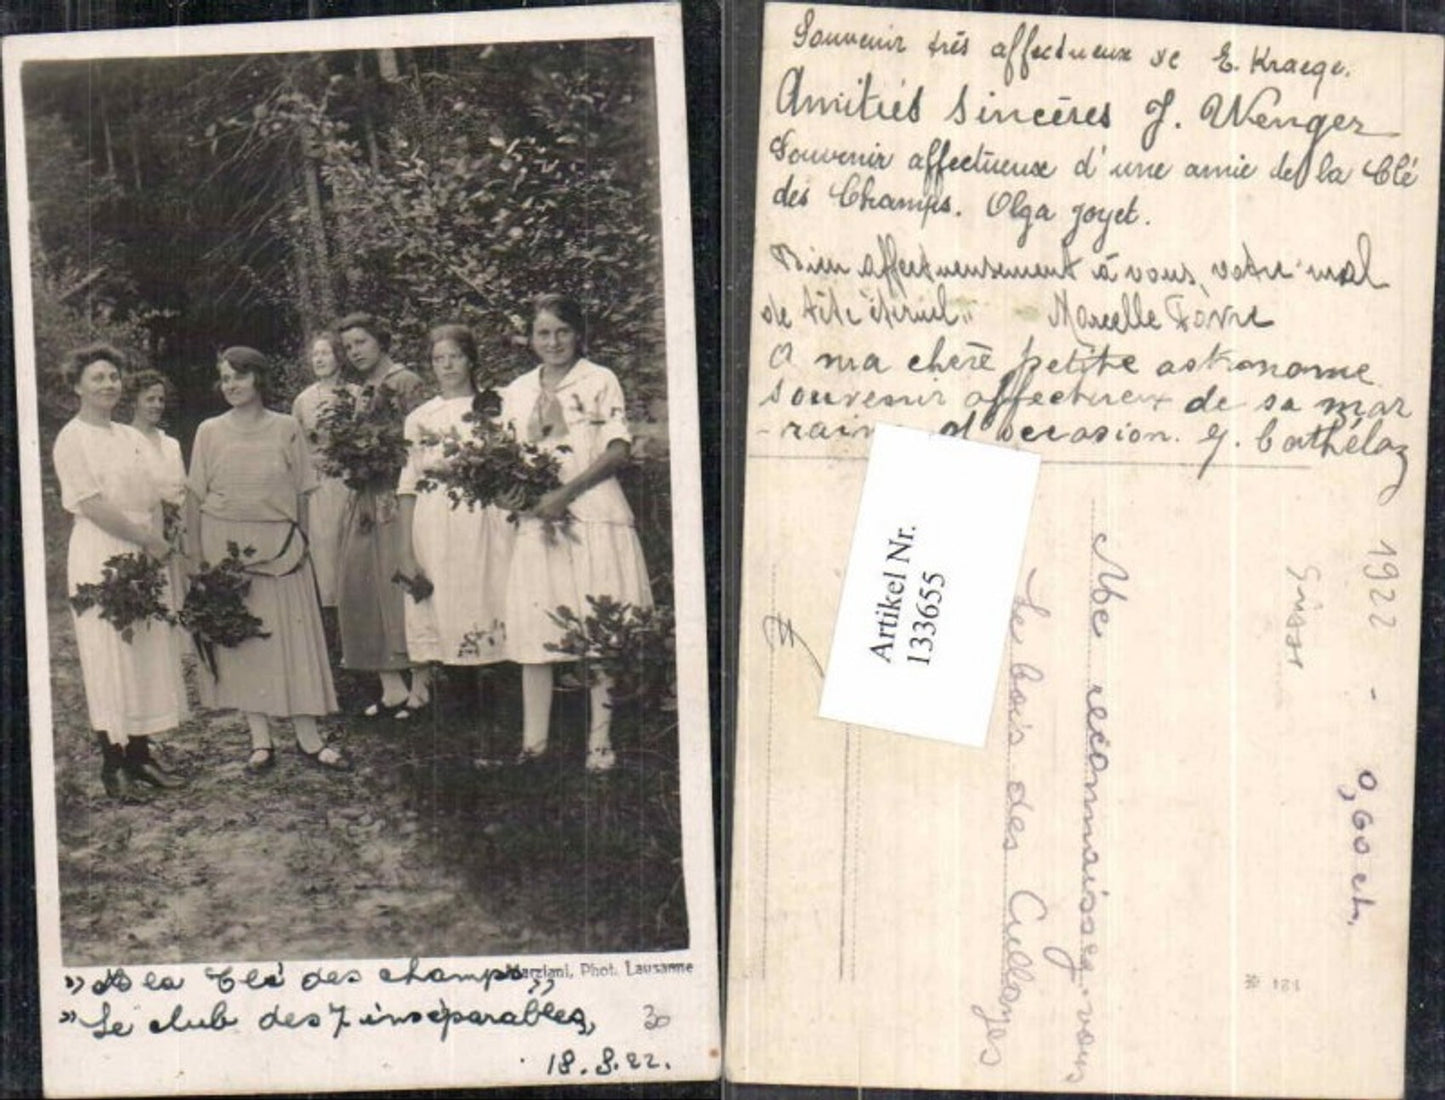 „A la Clé des champs„
Marziani, Phot. Lausanne
„Le club des 7 inséparables„
30
18.8.22.
Souvenir très affectueux de E. Kraege.
Amitiés sincères J. Wenger
Souvenir affectueux d'une amie de la Clé
des Champs. Olga Joyet.
Bien affectueusement à vous, votre mal
de tête éternel„ Marcelle Favre
A ma chère petite astronome
souvenir affectueux de sa mar
-raine d'occasion. J. Cathélaz
Artikel Nr.
133655
Me reconnaissez-vous
Le bois des Cullayes
Suisse
1922 - 0,60 ct.
121